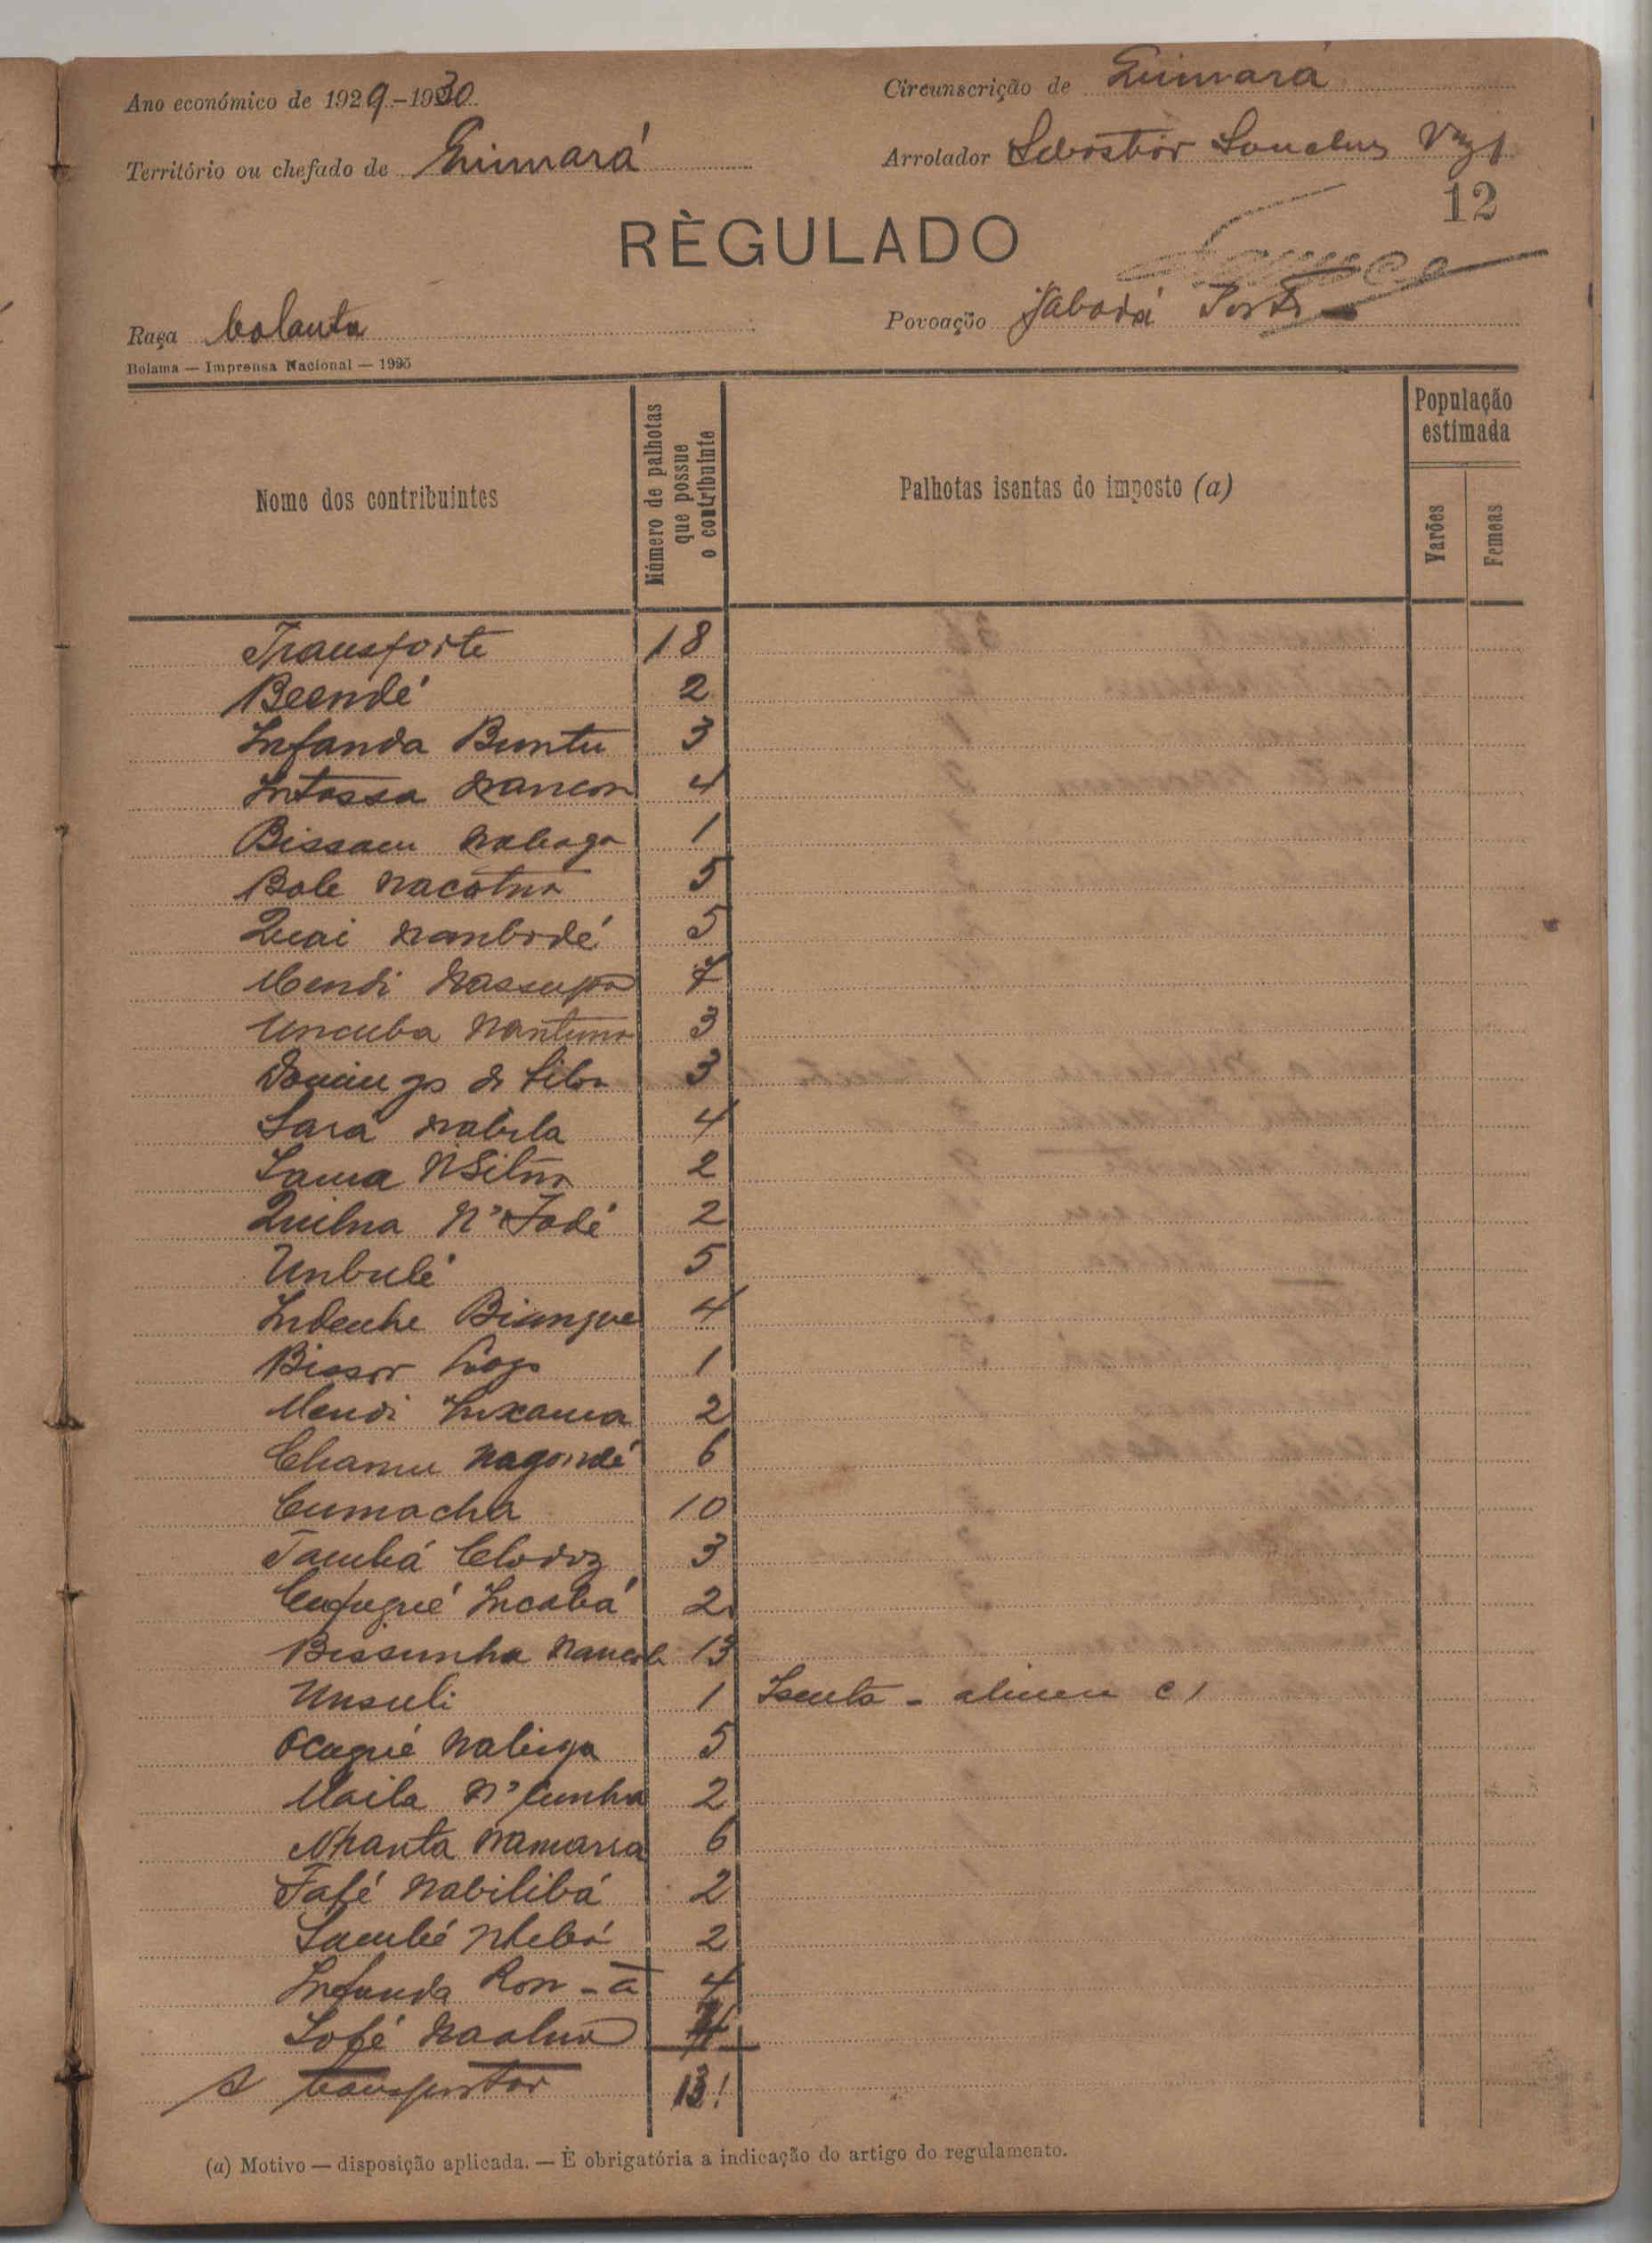 Ano económico de 1929-1930
Circunscrição de Quinará
Território ou chefado de Quinará
Arrolador
12
RÈGULADO
Raça balanta
Povoação Jabadá Porto
Bolama — Imprensa Nacional — 1925
Nome dos contribuintes
Número de palhotas que possue o contribuinte
Palhotas isentas do imposto (a)
População estimada
Varões
Femeas
Transporte 18
Beendé 2
Infanda Buntu 3
Intossa Nancon 4
Bissau Nabaga 1
Bole Nacatna 5
Quai Nambodé 5
Mendi 7
Uncuba 3
Domingos da Silva 3
Sara Nabila 4
Sama 2
Quilna N'Fodé 2
Unbulé 5
Indenhe Biangue 4
1
Mendi Inxama 2
Chamu Nagondé 6
Cumacha 10
Tambá 3
Incabá 2
Bissunha 13
Unsuli 1 Isenta - alinea c)
Nabinga 5
Maila N'Cunha 2
Nhanta Namarra 6
Fafé Nabilibá 2
Sambé 2
Infanda Ron-a 4
Sofé 4
A transportar 131
(a) Motivo — disposição aplicada. — É obrigatória a indicação do artigo do regulamento.